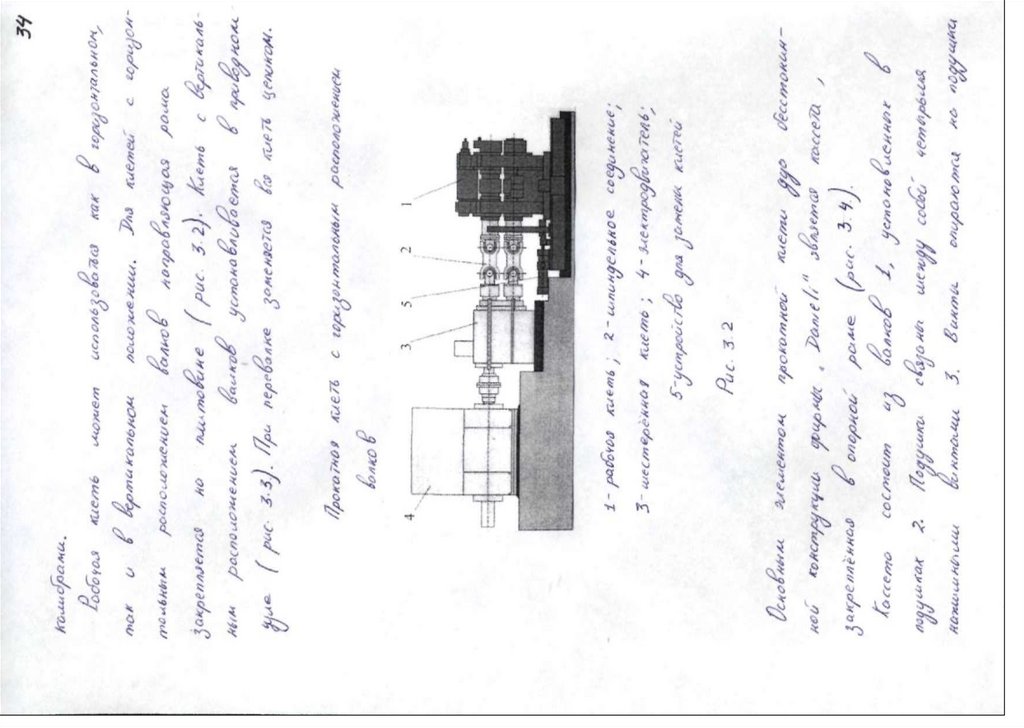 34
калибрами.
Рабочая клеть может использоваться как в горизонтальном,
так и в вертикальном положении. Для клетей с горизон-
тальным расположением валков направляющая рама
закрепляется на плитовине (рис. 3.2). Клеть с вертикаль-
ным расположением валков устанавливается в приводном
узле (рис. 3.3). При перевалке заменяется вся клеть целиком.
Прокатная клеть с горизонтальным расположением
валков
4
3
5
2
1
1 - рабочая клеть; 2 - шпиндельное соединение;
3 - шестерённая клеть; 4 - электродвигатель;
5 - устройство для замены клетей
Рис. 3.2
Основным элементом прокатной клети дуо бесстанин-
ной конструкции фирмы „Daneli" является кассета,
закреплённая в опорной раме (рис. 3.4).
Кассета состоит из валков 1, установленных в
подушках 2. Подушки связаны между собой четырьмя
нажимными винтами 3. Винты опираются на подушки